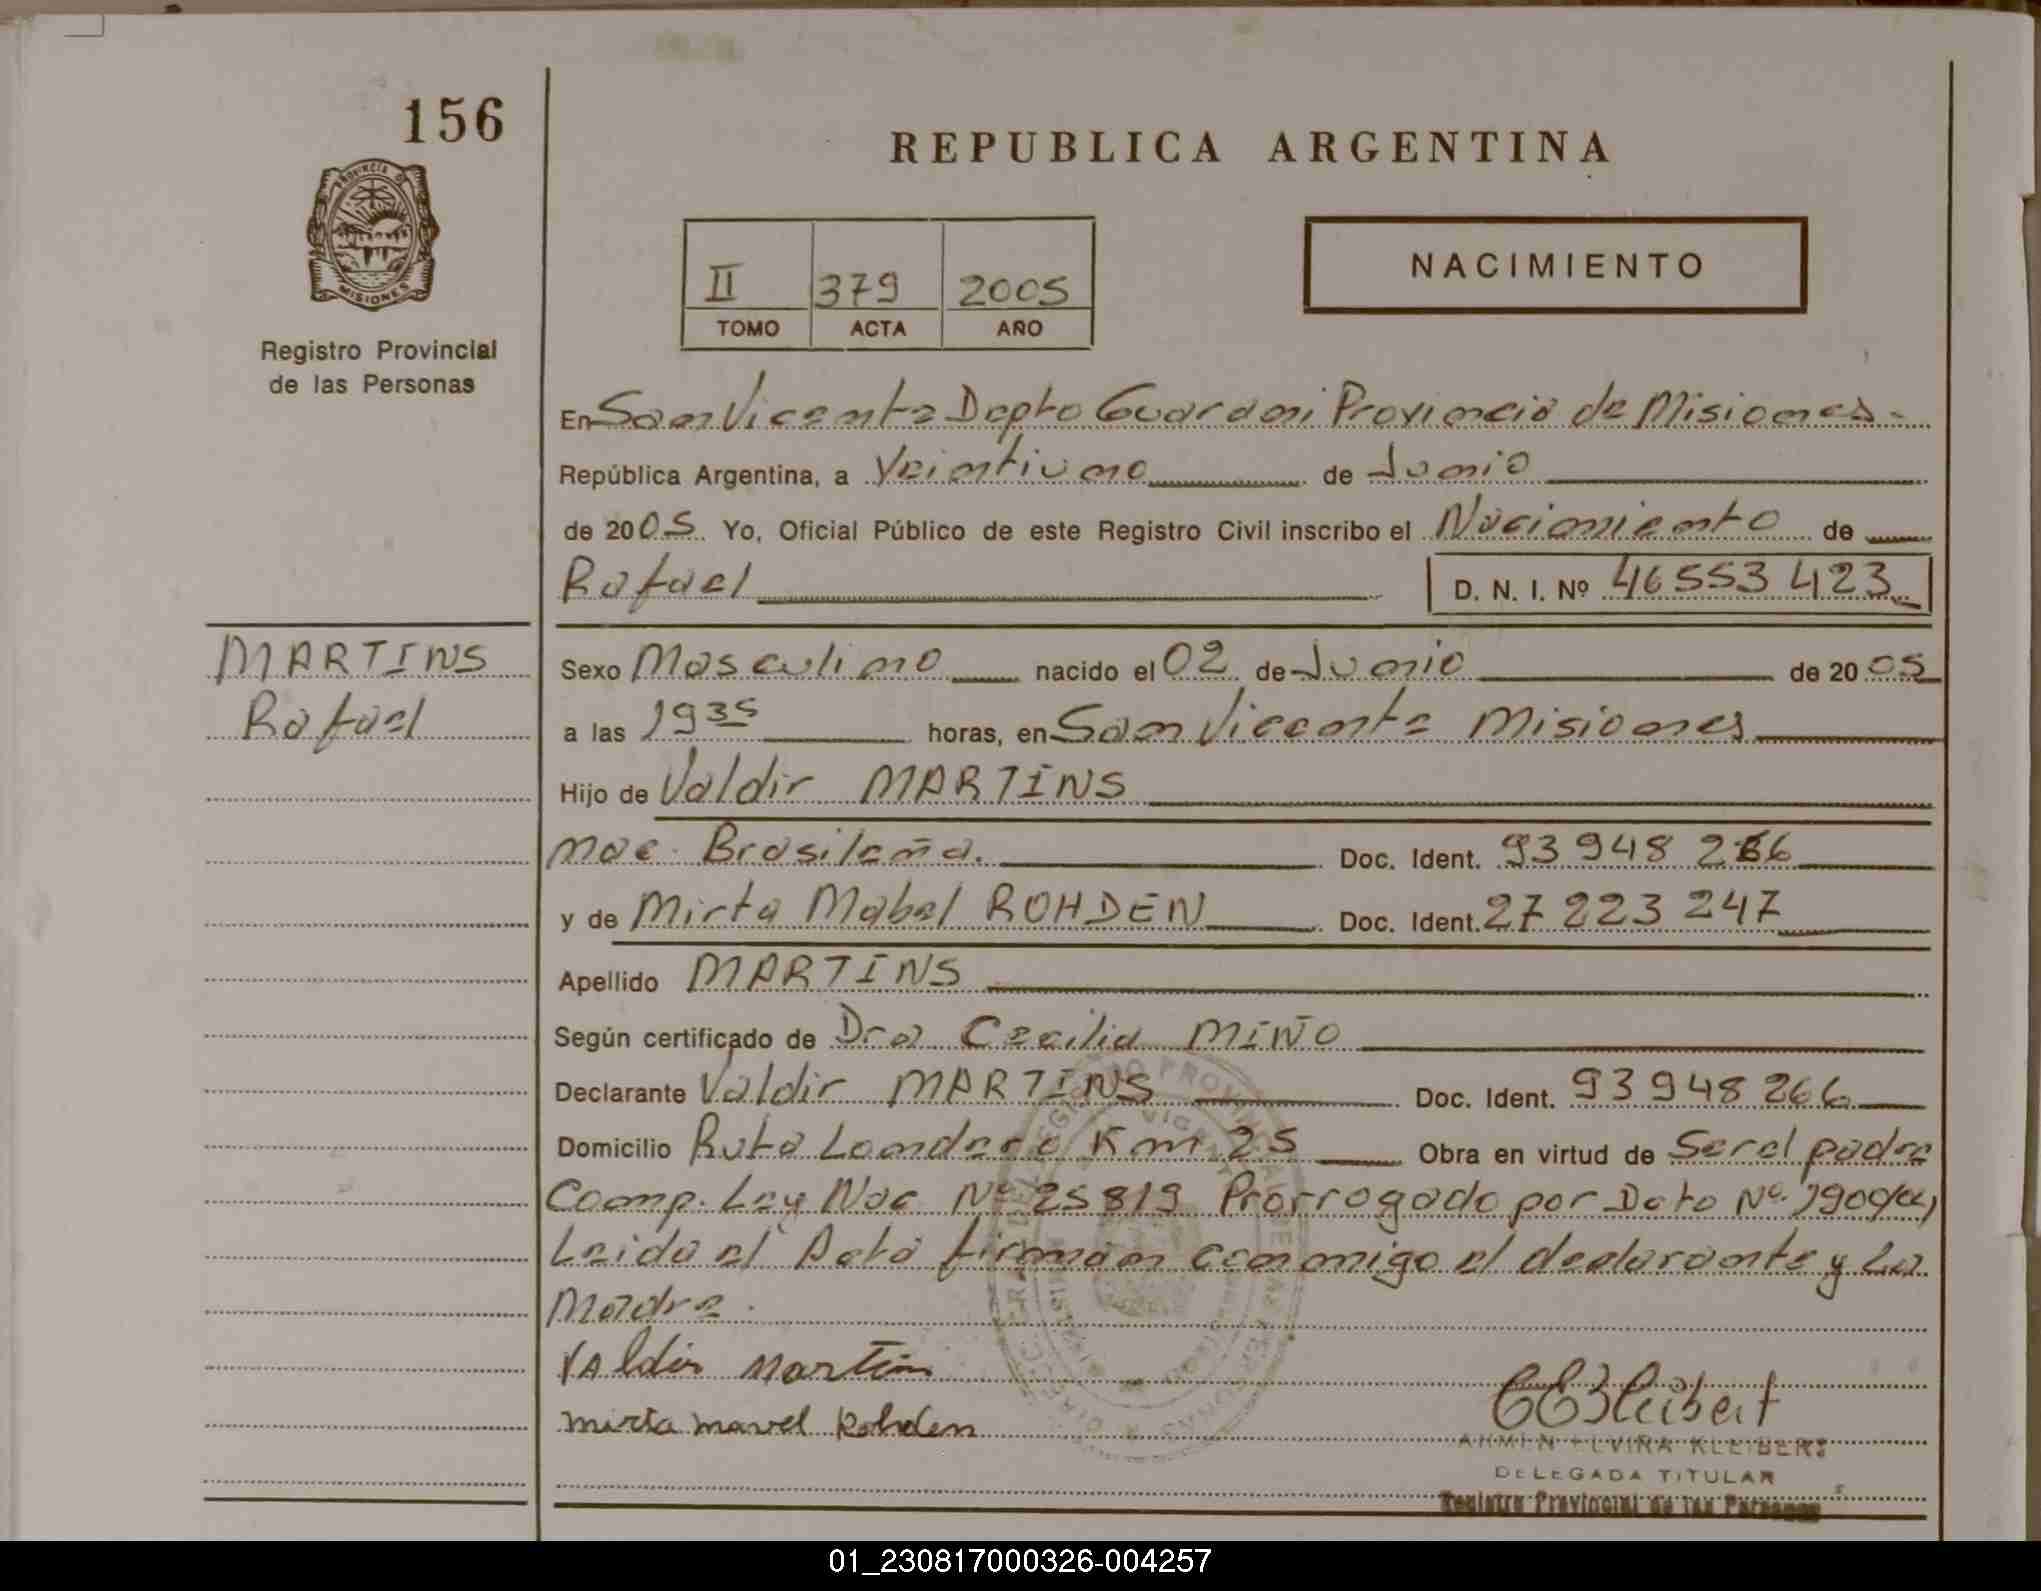 156
REPUBLICA ARGENTINA
PROVINCIA DE
MISIONES
Registro Provincial
de las Personas
II 379 2005
TOMO ACTA AÑO
NACIMIENTO
En San Vicente Depto Guarani Provincia de Misiones -
República Argentina, a Veintiuno de Junio
de 2005. Yo, Oficial Público de este Registro Civil inscribo el Nacimiento de
Rafael D. N. I. Nº 46553 423
MARTINS
Rafael
Sexo Masculino nacido el 02 de Junio de 20 05
a las 19 35 horas, en San Vicente Misiones
Hijo de Valdir MARTINS
nac. Brasileña. Doc. Ident. 93 948 266
y de Mirta Mabel ROHDEN Doc. Ident. 27 223 247
Apellido MARTINS
Según certificado de Dra Cecilia MIÑO
Declarante Valdir MARTINS Doc. Ident. 93 948 266
Domicilio Ruta Londero Km 25 Obra en virtud de Ser el padre
Comp. Ley Nac Nº 25819 Prorrogado por Dcto Nº
Leida el Acta firman conmigo el declarante y La
Madre.
VAldir Martins
mirta mavel Rohden
ARMIN ELVIRA KLEIBERT
DELEGADA TITULAR
Registro Provincial de las Personas
01_230817000326-004257